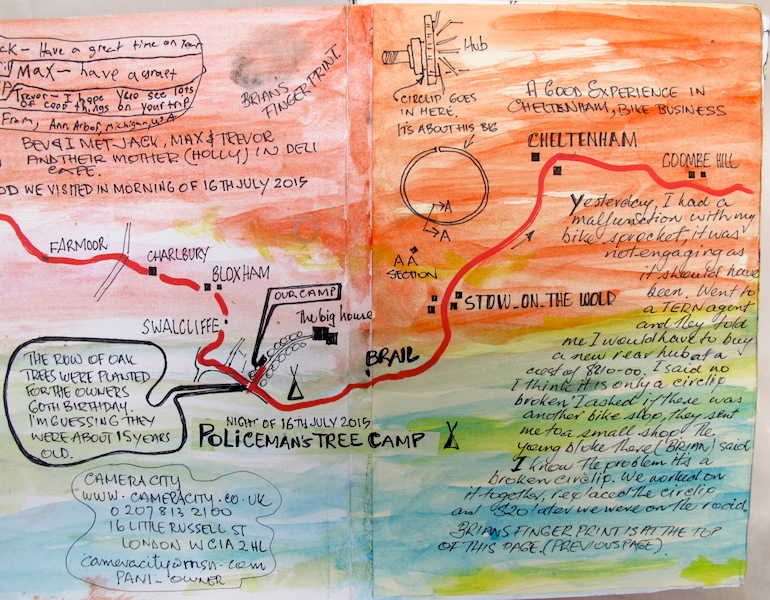 CK - Have a great time on Tour
MAX - have a great
Trevor - I hope you see lots
of good things on your trip
From, Ann Arbor, Michigan, USA
BRIAN'S
FINGERPRINT
BEV & I MET JACK, MAX & TREVOR
AND THEIR MOTHER (HOLLY) IN DELI
CAFE.
OD WE VISITED IN MORNING OF 16TH JULY 2015
FARMOOR
CHARLBURY
BLOXHAM
SWALCLIFFE
OUR CAMP
The big house
THE ROW OF OAK
TREES WERE PLANTED
FOR THE OWNERS
60TH BIRTHDAY.
I'M GUESSING THEY
WERE ABOUT 15 YEARS
OLD.
NIGHT OF 16TH JULY 2015
POLICEMAN'S TREE CAMP
CAMERA CITY
WWW.CAMERACITY.CO.UK
0 207 813 2100
16 LITTLE RUSSELL ST
LONDON WC1A 2HL
cameracity@msn.com
PANI - OWNER
Hub
CIRCLIP GOES
IN HERE,
IT'S ABOUT THIS BIG
A
A
A A
SECTION
A GOOD EXPERIENCE IN
CHELTENHAM, BIKE BUSINESS
CHELTENHAM
COOMBE HILL
STOW-ON-THE WOLD
BRAIL
Yesterday, I had a
malfunction with my
bike sprocket, it was
not engaging as
it should have
been. Went to
a TERN agent
and they told
me I would have to buy
a new rear hub at a
cost of $210-00. I said no
I think it is only a circlip
broken. I asked if there was
another bike shop, they sent
me to a small shop. The
young bloke there (BRIAN) said
I know the problem it's a
broken circlip. We worked on
it together, replaced the circlip
and $20 later we were on the road.
BRIANS FINGERPRINT IS AT THE TOP
OF THIS PAGE. (PREVIOUS PAGE).